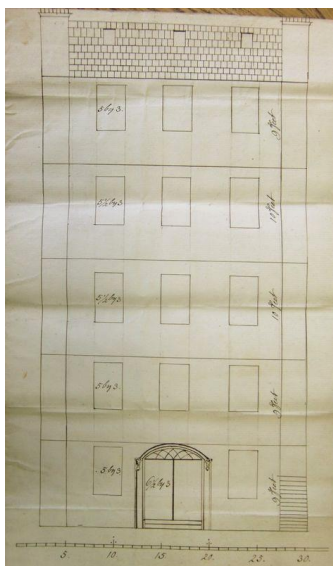 5 by 3. 9 feet
5½ by 3 10 feet
5½ by 3 10 feet
5 by 3 9 feet
5 by 3 6½ by 3 9 feet
5. 10. 15. 20. 25. 30.